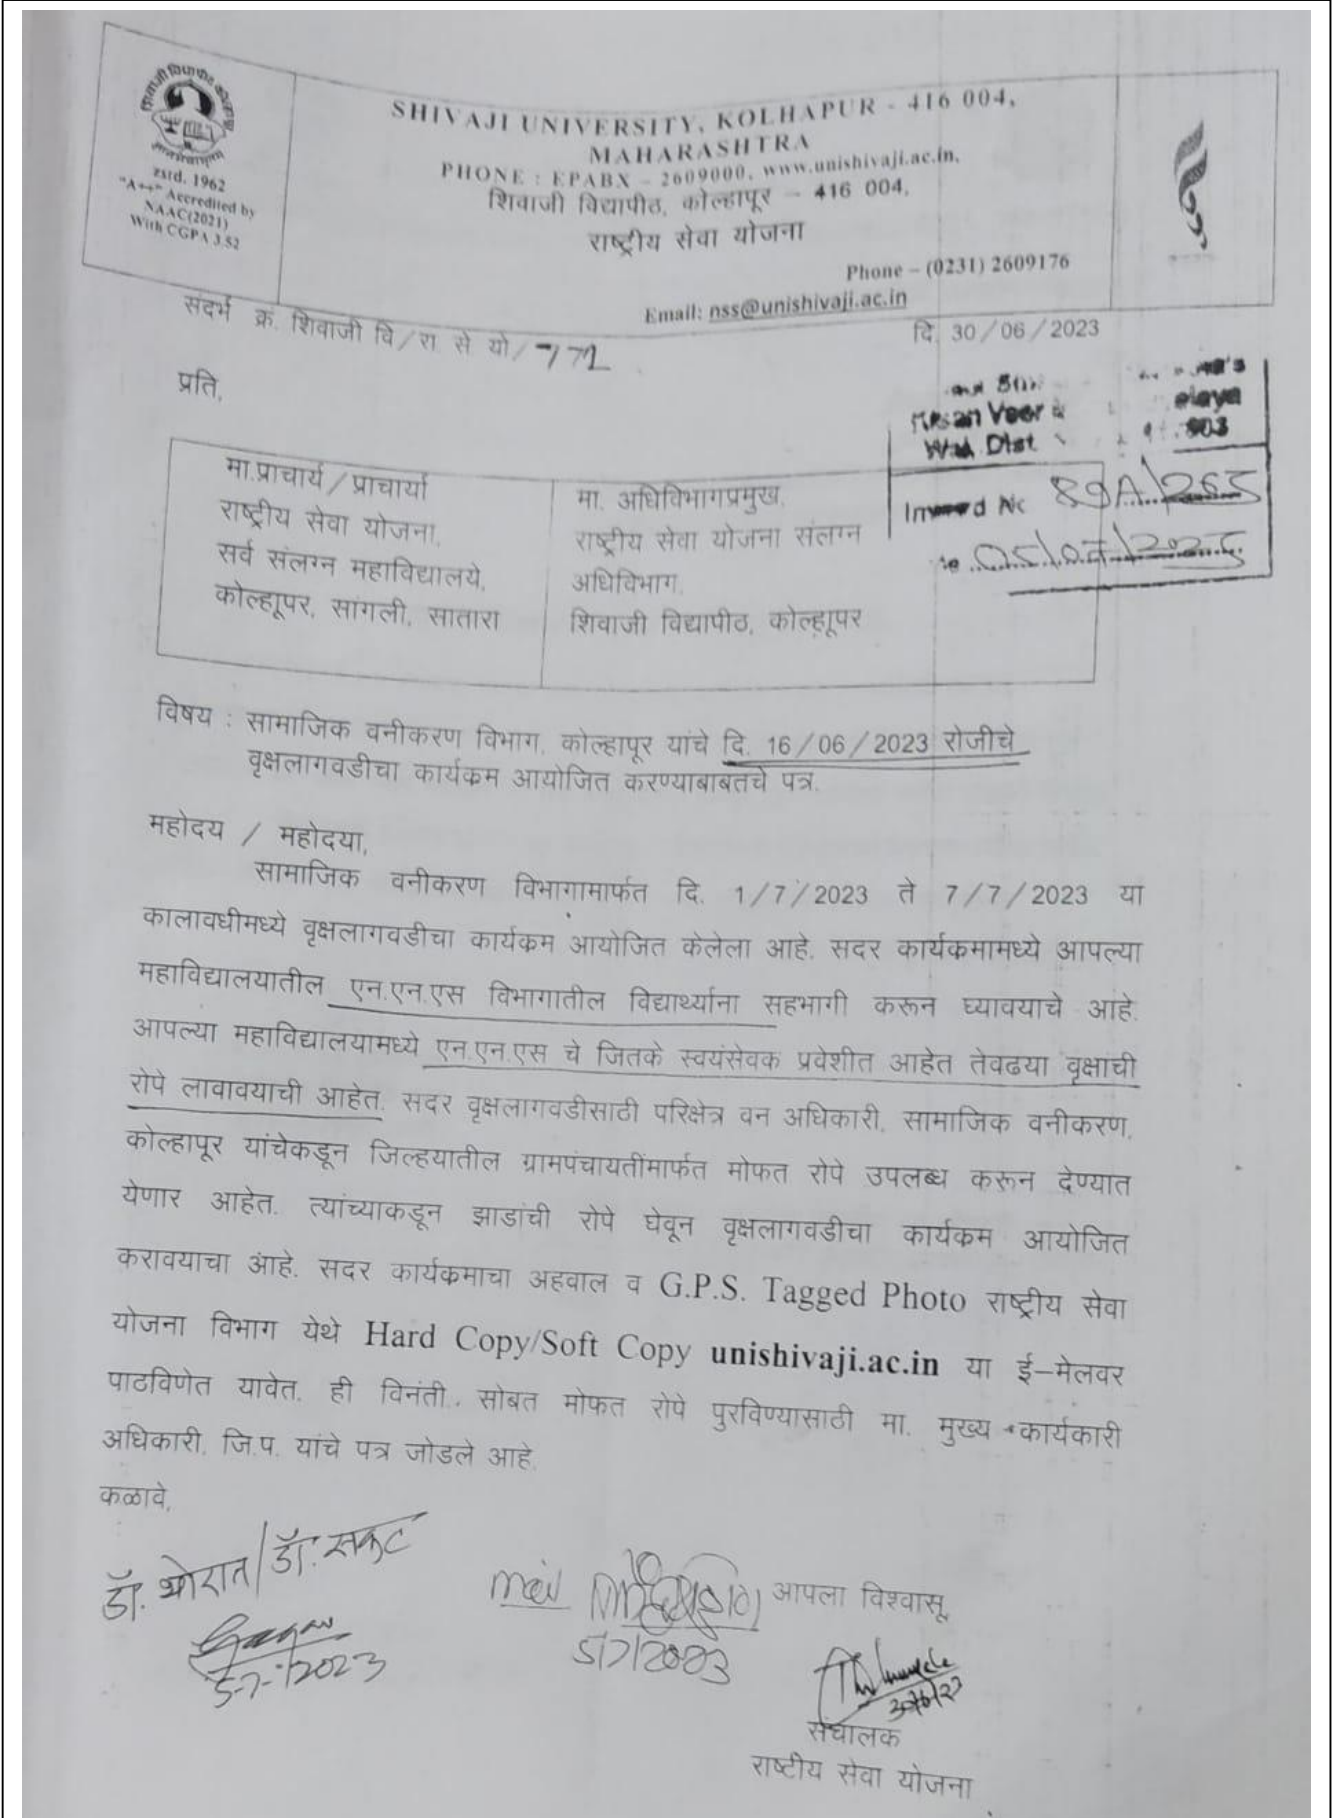 शिवाजी विद्यापीठ कोल्हापूर
ज्ञानमेवामृतम्
Estd. 1962
"A++" Accredited by
NAAC(2021)
With CGPA 3.52
SHIVAJI UNIVERSITY, KOLHAPUR - 416 004,
MAHARASHTRA
PHONE : EPABX – 2609000, www.unishivaji.ac.in,
शिवाजी विद्यापीठ, कोल्हापूर – 416 004,
राष्ट्रीय सेवा योजना
Phone – (0231) 2609176
Email: nss@unishivaji.ac.in
संदर्भ क्र. शिवाजी वि/रा. से यो/772
दि. 30/06/2023
प्रति,
Veer
Dist
903
Inward No 89A/265
मा.प्राचार्य/प्राचार्या
राष्ट्रीय सेवा योजना,
सर्व संलग्न महाविद्यालये,
कोल्हाूपर, सांगली, सातारा
मा. अधिविभागप्रमुख,
राष्ट्रीय सेवा योजना संलग्न
अधिविभाग,
शिवाजी विद्यापीठ, कोल्हाूपर
विषय : सामाजिक वनीकरण विभाग, कोल्हापूर यांचे दि. 16/06/2023 रोजीचे
वृक्षलागवडीचा कार्यकम आयोजित करण्याबाबतचे पत्र.
महोदय / महोदया,
सामाजिक वनीकरण विभागामार्फत दि. 1/7/2023 ते 7/7/2023 या
कालावधीमध्ये वृक्षलागवडीचा कार्यकम आयोजित केलेला आहे. सदर कार्यकमामध्ये आपल्या
महाविद्यालयातील एन.एन.एस विभागातील विद्यार्थ्याना सहभागी करून घ्यावयाचे आहे.
आपल्या महाविद्यालयामध्ये एन.एन.एस चे जितके स्वयंसेवक प्रवेशीत आहेत तेवढया वृक्षाची
रोपे लावावयाची आहेत. सदर वृक्षलागवडीसाठी परिक्षेत्र वन अधिकारी, सामाजिक वनीकरण,
कोल्हापूर यांचेकडून जिल्हयातील ग्रामपंचायतींमार्फत मोफत रोपे उपलब्ध करून देण्यात
येणार आहेत. त्यांच्याकडून झाडांची रोपे घेवून वृक्षलागवडीचा कार्यकम आयोजित
करावयाचा आहे. सदर कार्यकमाचा अहवाल व G.P.S. Tagged Photo राष्ट्रीय सेवा
योजना विभाग येथे Hard Copy/Soft Copy unishivaji.ac.in या ई–मेलवर
पाठविणेत यावेत. ही विनंती. सोबत मोफत रोपे पुरविण्यासाठी मा. मुख्य कार्यकारी
अधिकारी, जि.प. यांचे पत्र जोडले आहे.
कळावे,
डॉ. थोरात/डॉ. सकट
5-7-2023
mail
5/7/2023
आपला विश्वासू,
30/6/23
संचालक
राष्टीय सेवा योजना